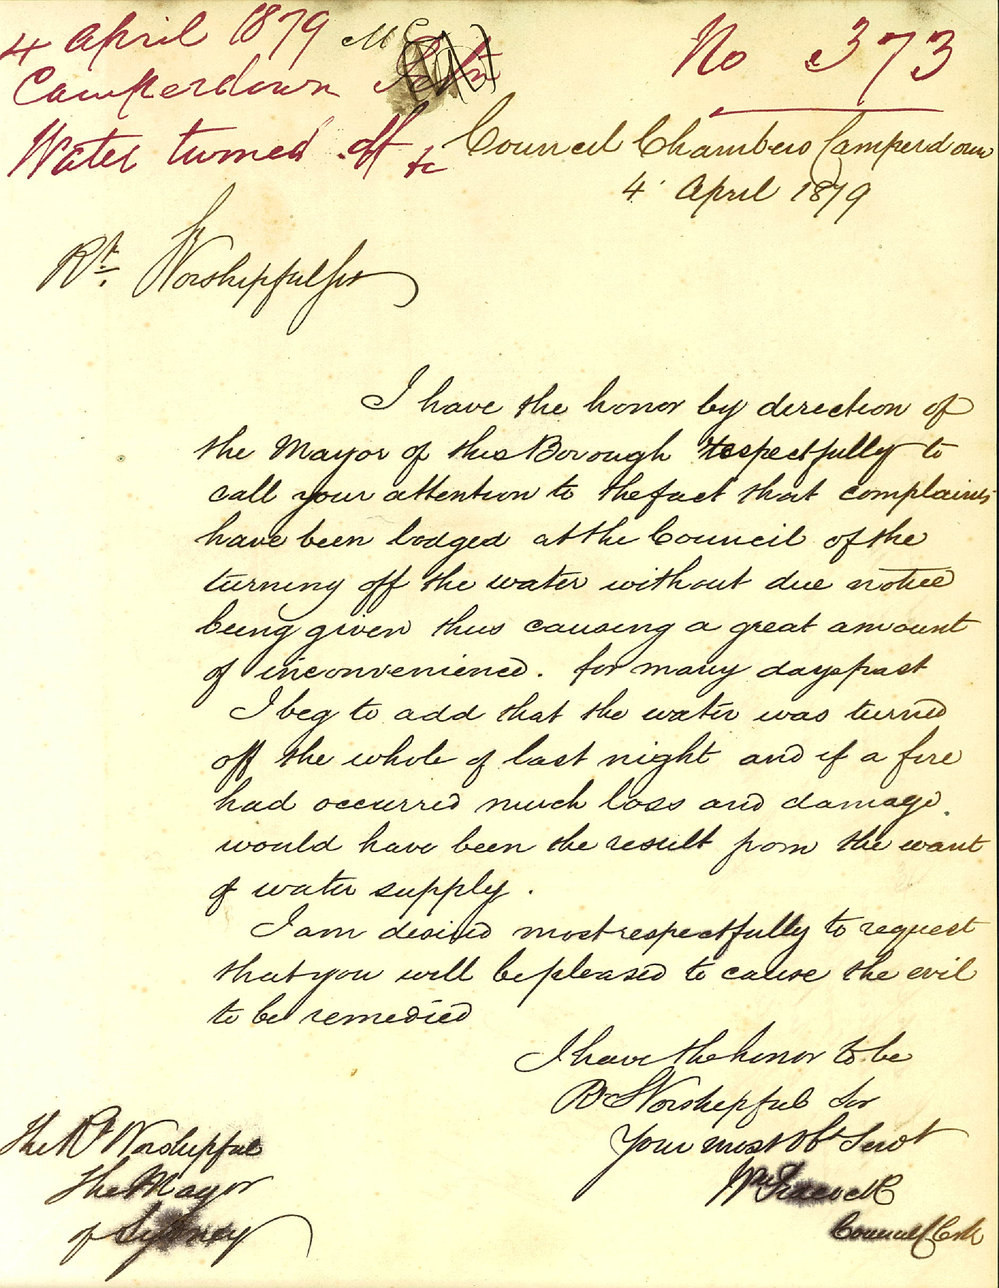 4 April 1879
No 373
Camperdown
Water turned off &c
Council Chambers Camperdown
4 April 1879
Rt. Worshipful Sir
I have the honor by direction of
the Mayor of this Borough respectfully to
call your attention to the fact that complaints
have been lodged at the Council of the
turning off the water without due notice
being given thus causing a great amount
of inconvenience. for many days past
I beg to add that the water was turned
off the whole of last night and if a fire
had occurred much loss and damage
would have been the result from the want
of water supply.
I am desired most respectfully to request
that you will be pleased to cause the evil
to be remedied
I have the honor to be
Rt Worshipful Sir
Your most Obt Servt
Wm Peacock
Council Clerk
The Rt Worshipful
The Mayor
of Sydney